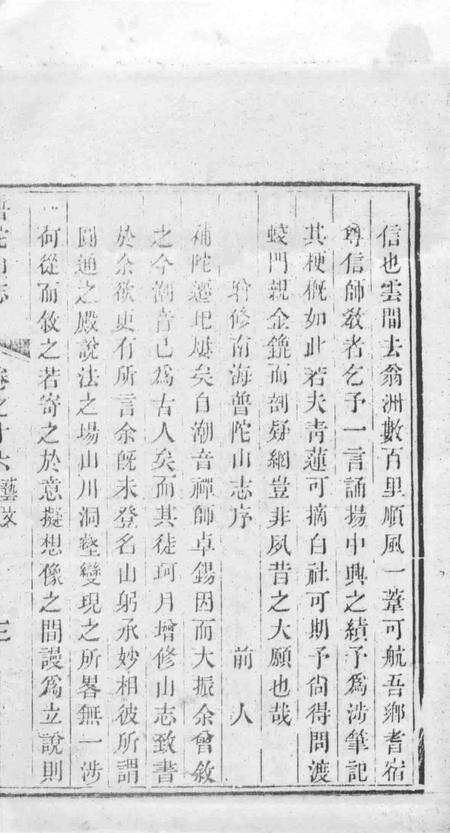 信也雲間去翁洲數百里順風一葦可航吾鄉耆宿
尊信師敎者乞予一言誦揚中興之績予為涉筆記
其梗槪如此若夫靑蓮可摘白社可期予尙得問渡
蛟門親金鎞而剖疑網豈非夙昔之大願也哉
修南海普陀山志序 前人
補陀遷圯屢矣自潮音禪師卓錫因而大振余曾敘
之今潮音已為古人矣而其徒珂月增修山志致書
於余欲更有所言余旣未登名山躬承妙相彼所謂
圓通之殿說法之塲山川洞壑變現之所畧無一涉
何從而敘之若寄之於意擬想像之間謾為立說則
普陀山志 卷之十六 藝文 三